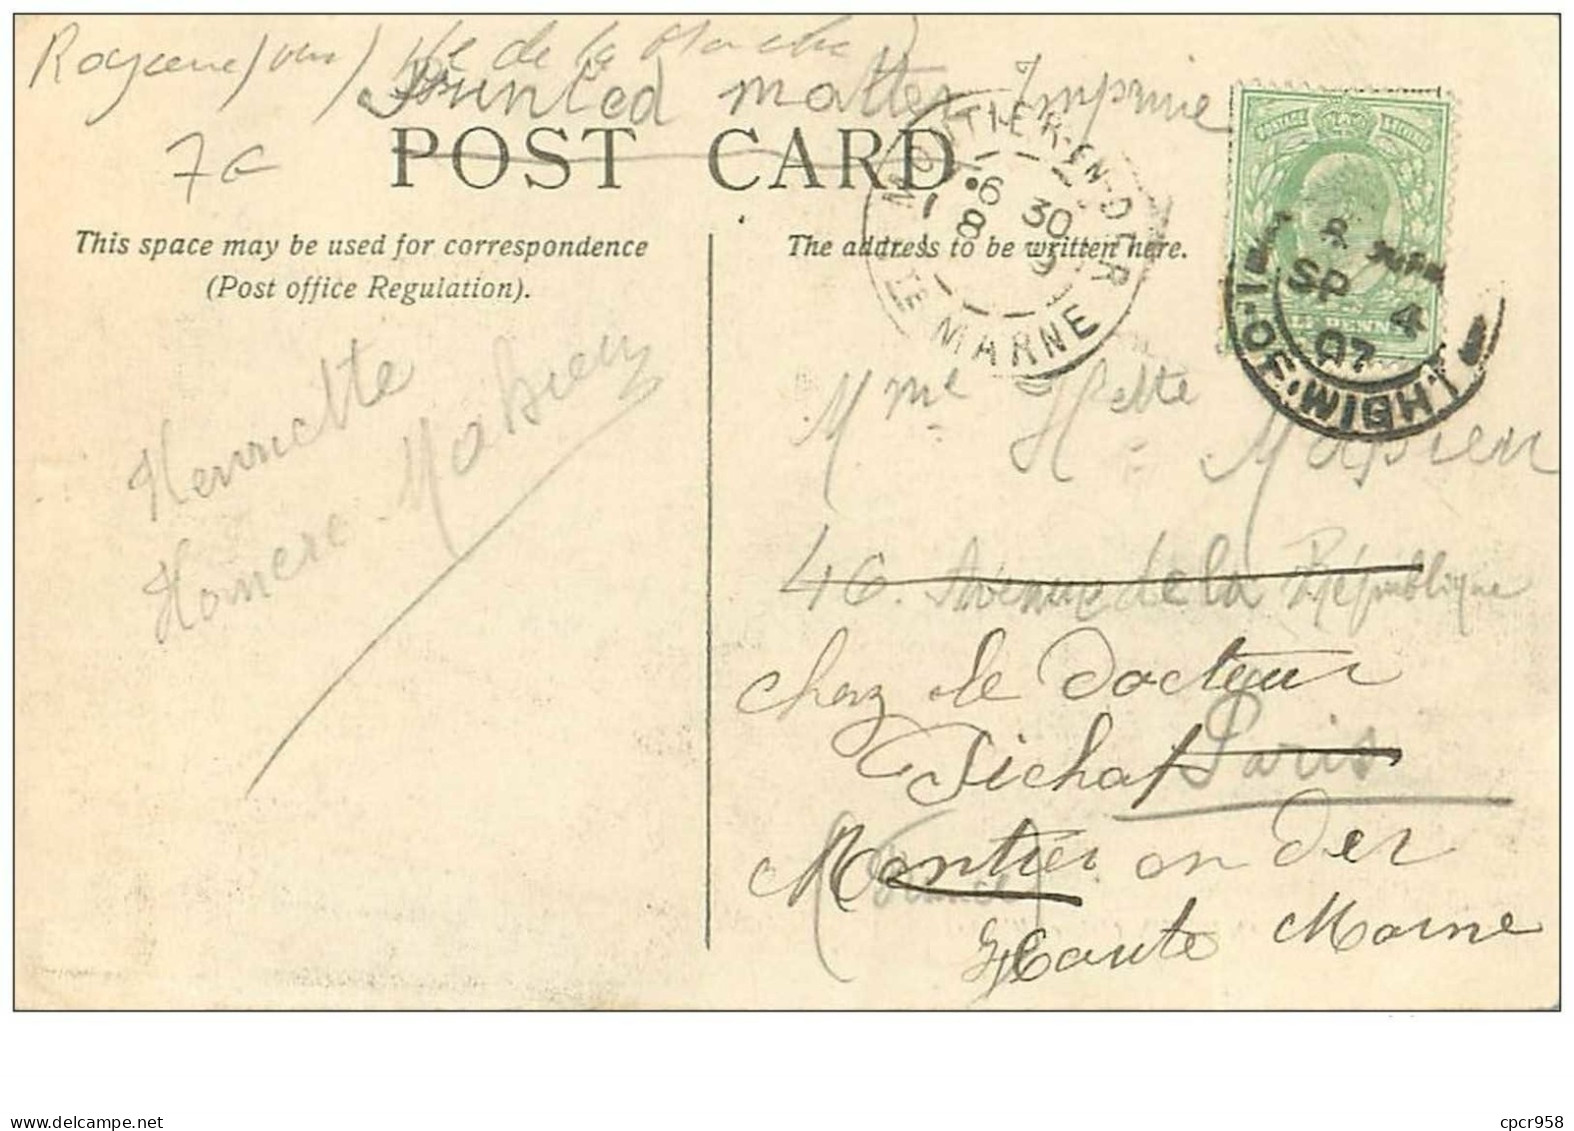 Royaume / Uni / Ile de la Manche
Printed matter Imprimé
7G
POST CARD
This space may be used for correspondence
(Post office Regulation).
The address to be written here.
MONTIER-EN-DER
6 30
8 9
HTE MARNE
POSTAGE
SP 4
07
I-OF-WIGHT
Henriette
Homère-Massieu
Mme Hette Massieu
46. Avenue de la République
chez le docteur
Pichat
Paris
Montier en Der
(France)
Haute Marne
delcampe.net
cpcr958